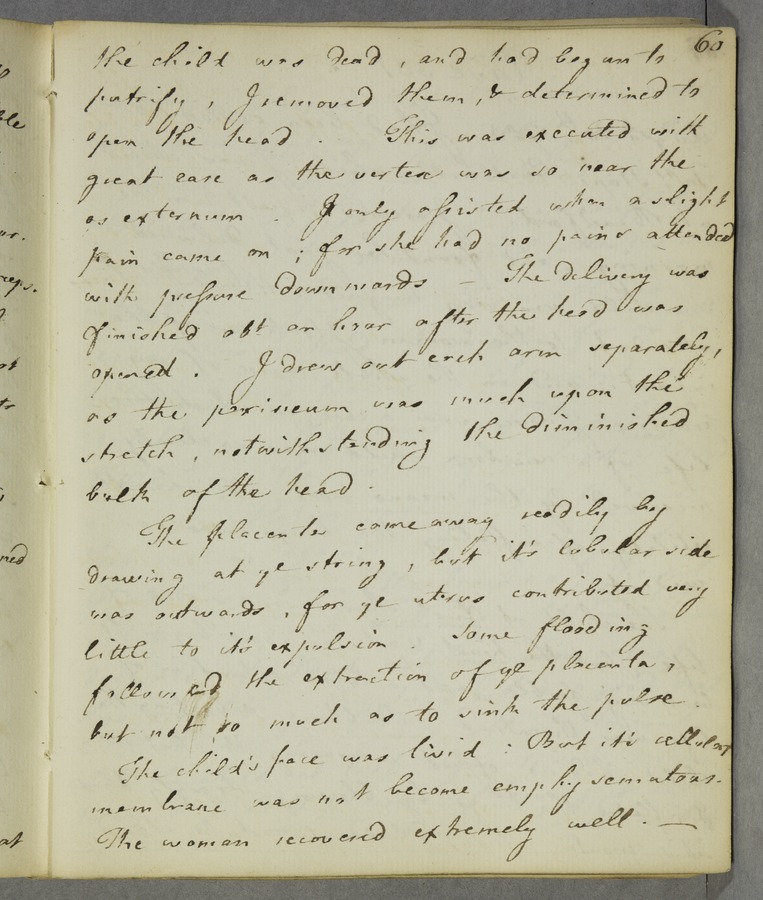 60
the child was dead, and had begun to
putrify, I removed them, & determined to
open the head. This was executed with
great ease as the vertex was so near the
os externum. I only assisted when a slight
pain came on; for she had no pains attended
with pressure downwards — The delivery was
finished abt an hour after the head was
opened. I drew out each arm separately,
as the perineum was much upon the
stretch, notwithstanding the diminished
bulk of the head.
The placenta came away readily by
drawing at ye string, but it's lobular side
was outwards, for ye uterus contributed very
little to it's expulsion. Some flooding
followed the extraction of ye placenta,
but not so much as to sink the pulse.
The child's face was livid: But it's cellular
membrane was not become emphysematous.
The woman recovered extremely well. —